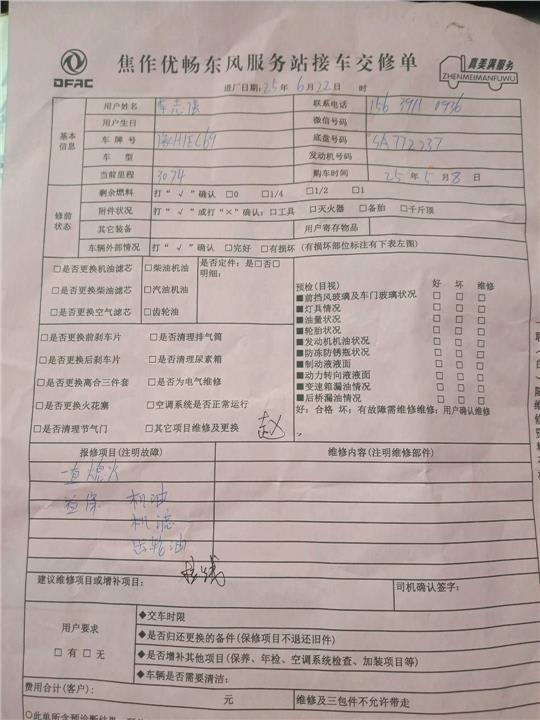 DFAC
焦作优畅东风服务站接车交修单
真美满服务
ZHENMEIMANFUWU
进厂日期: 25 年 6 月 22 日 时
基本信息
用户姓名 联系电话 156 3911 0936
用户生日 微信号码
车牌号 底盘号码 SA772237
车型 发动机号码
当前里程 3074 购车时间 25 年 5 月 8 日
修前状态
剩余燃料 打“√”确认 □0 □1/4 □1/2 □1
附件状况 打“√”或打“×”确认: □工具 □灭火器 □备胎 □千斤顶
其它装备 用户寄存物品
车辆外部情况 打“√”确认 □完好 □有损坏 (有损坏部位标注有下表左图)
□是否更换机油滤芯 □柴油机油
□是否更换柴油滤芯 □汽油机油
□是否更换空气滤芯 □齿轮油
是否定件: 是□否□
明细:
□是否更换前刹车片 □是否清理排气筒
□是否更换后刹车片 □是否清理尿素箱
□是否更换离合三件套 □是否为电气维修
□是否更换火花塞 □空调系统是否正常运行
□是否清理节气门 □其它项目维修及更换 赵
预检(目视) 好 坏 维修
■前挡风玻璃及车门玻璃状况 □ □ □
■灯具情况 □ □ □
■油量状况 □ □ □
■轮胎状况 □ □ □
■发动机机油状况 □ □ □
■防冻防锈瓶状况 □ □ □
■制动液液面 □ □ □
■动力转向液液面 □ □ □
■变速箱漏油情况 □ □ □
■后桥漏油情况 □ □ □
好: 合格 坏: 有故障需维修维修: 用户确认维修
报修项目(注明故障) 维修内容(注明维修部件)
一直熄火
首保 机油
机滤
齿轮油
建议维修项目或增补项目: 司机确认签字:
用户要求
□有 □无
◆交车时限
◆是否归还更换的备件(保修项目不退还旧件)
◆是否增补其他项目(保养、年检、空调系统检查、加装项目等)
◆车辆是否需要清洁:
费用合计(客户): 元 维修及三包件不允许带走